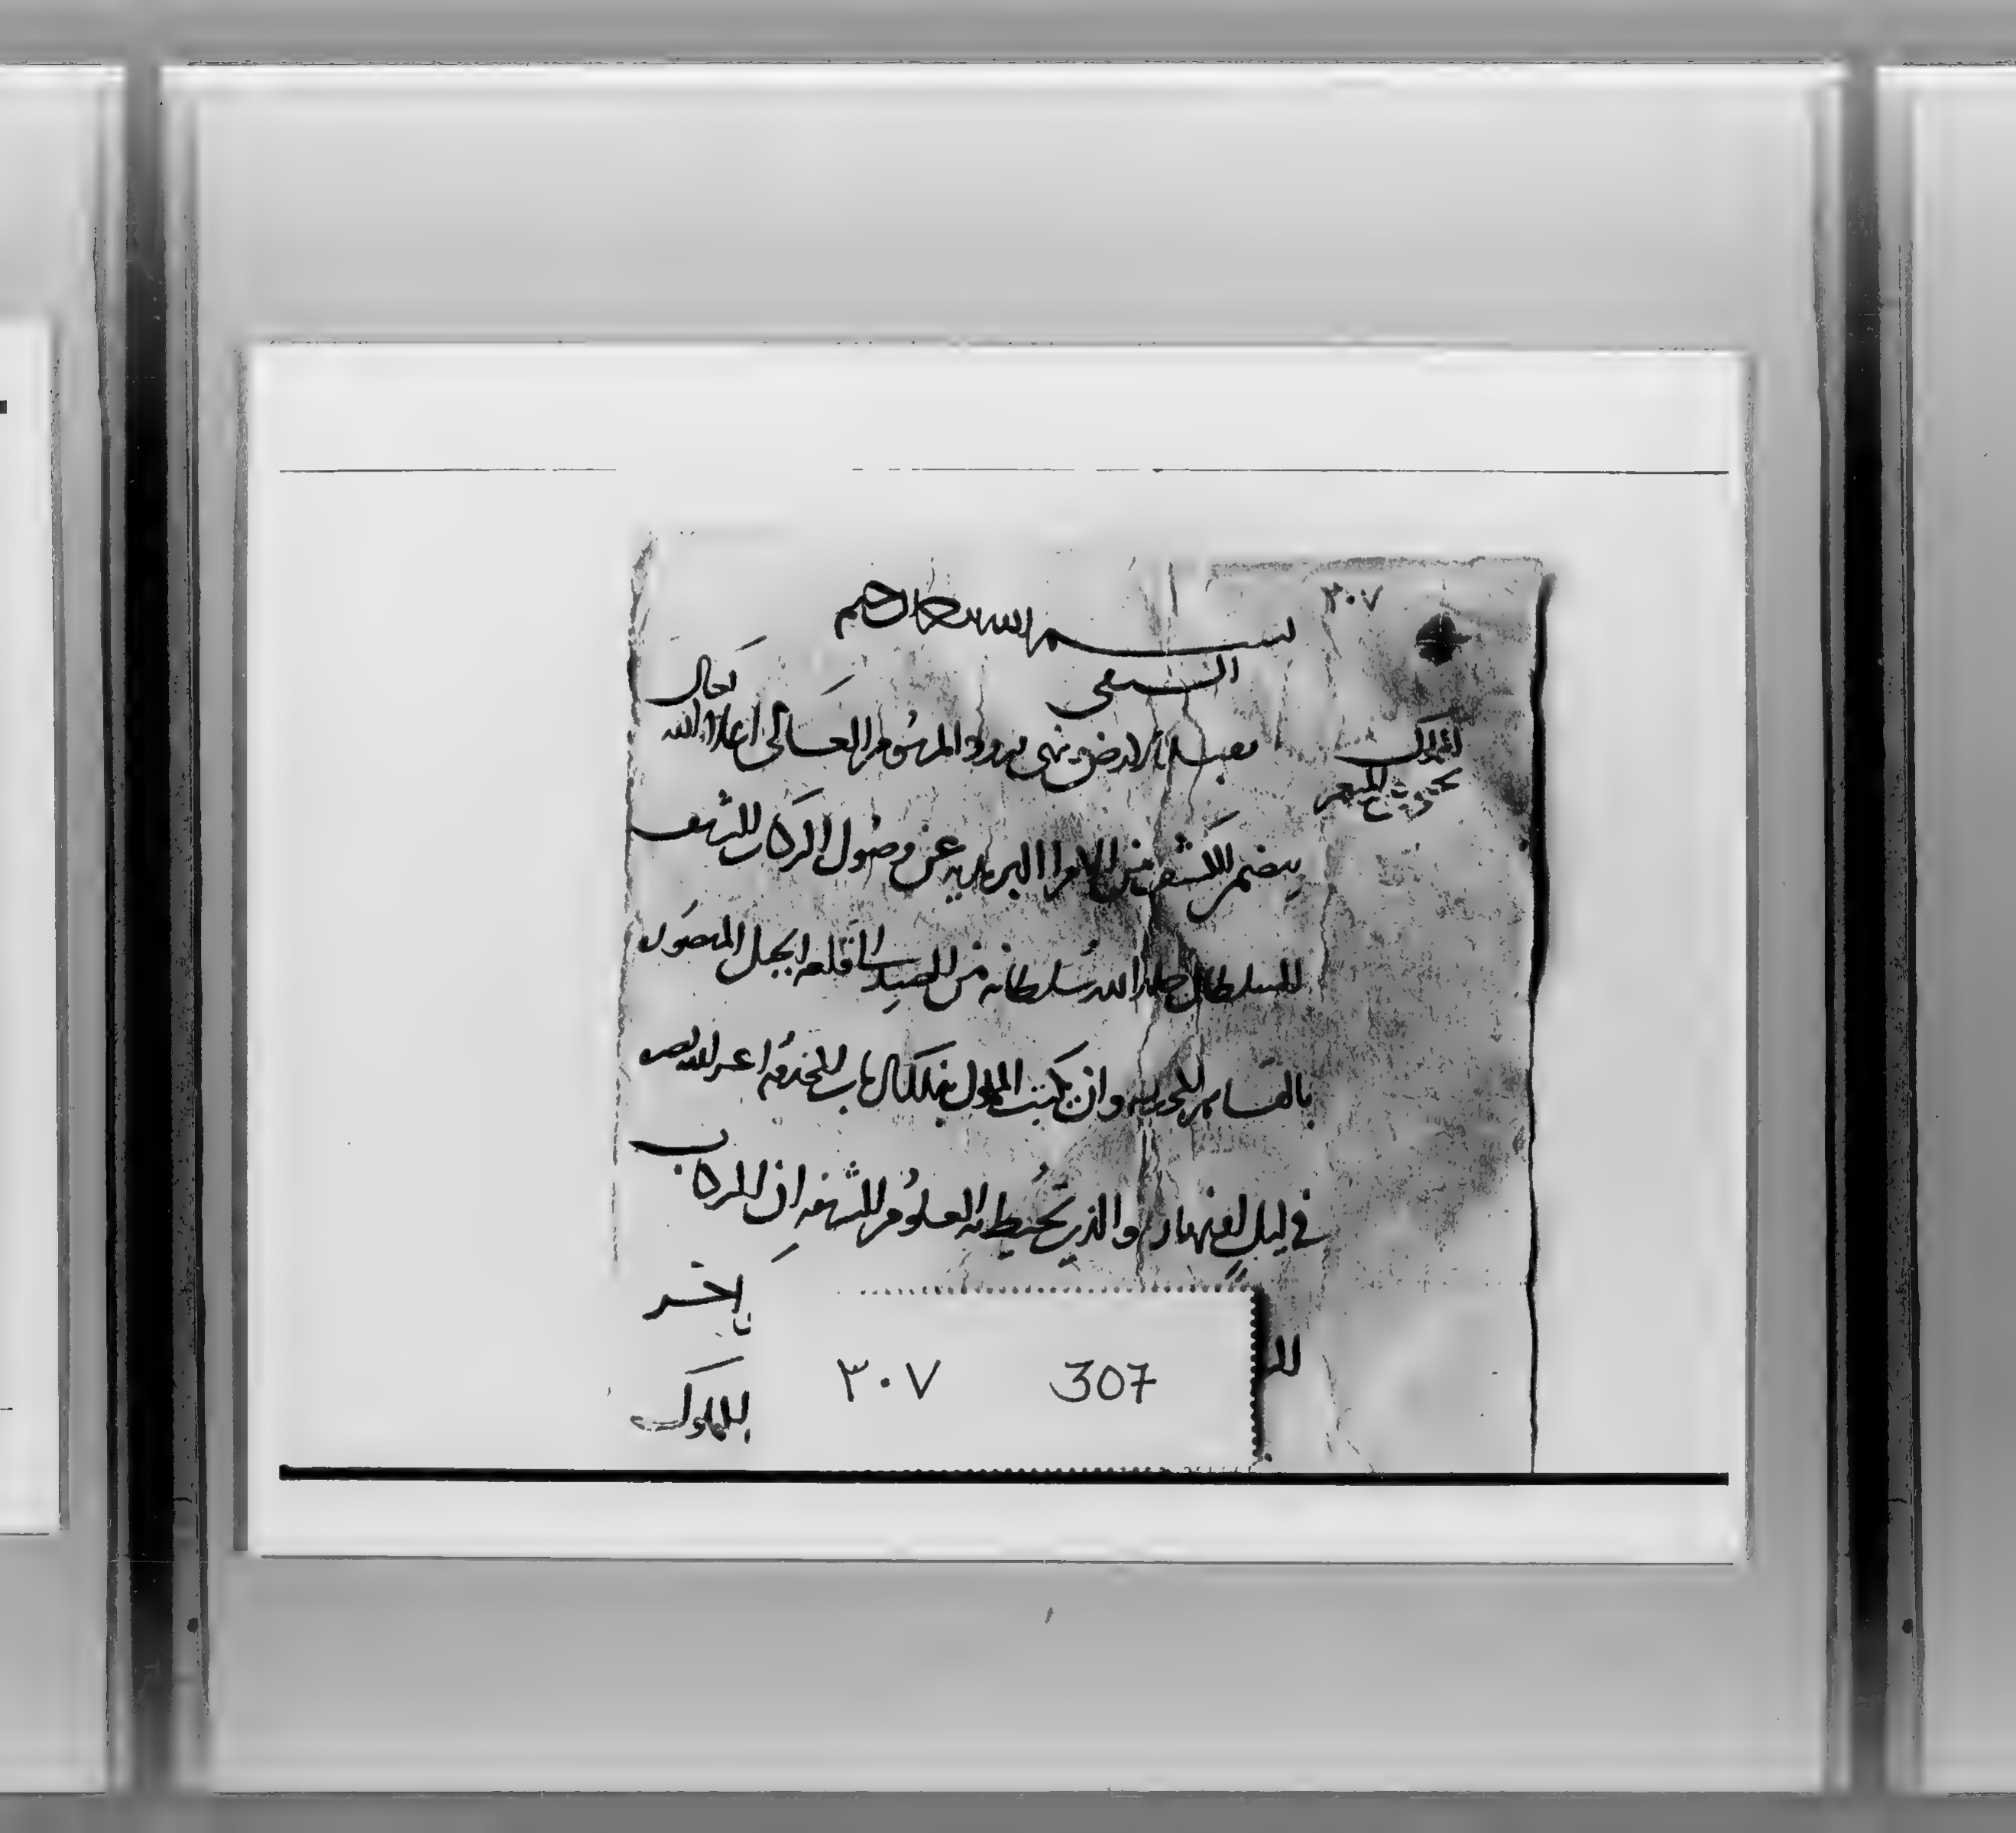 ٣٠٧
بسم الله الرحمن الرحيم
السيفى
المملوك
يقبل الارض وينهى ورود المرسوم العالى اعلاه الله تعالى
يتضمن الكشف من الامرا البريديه عن وصول الركاب الشريف
السلطانى خلد الله سلطانه من الصيد الى قلعة الجبل المنصوره
بالقاهره المحروسه وان يكتب المملوك بذلك الى باب المخدوم اعز الله نصره
فى ليل او نهار والذى تحيط به العلوم الشريفه ان الركاب
اخر
المملوك
٣٠٧ 307